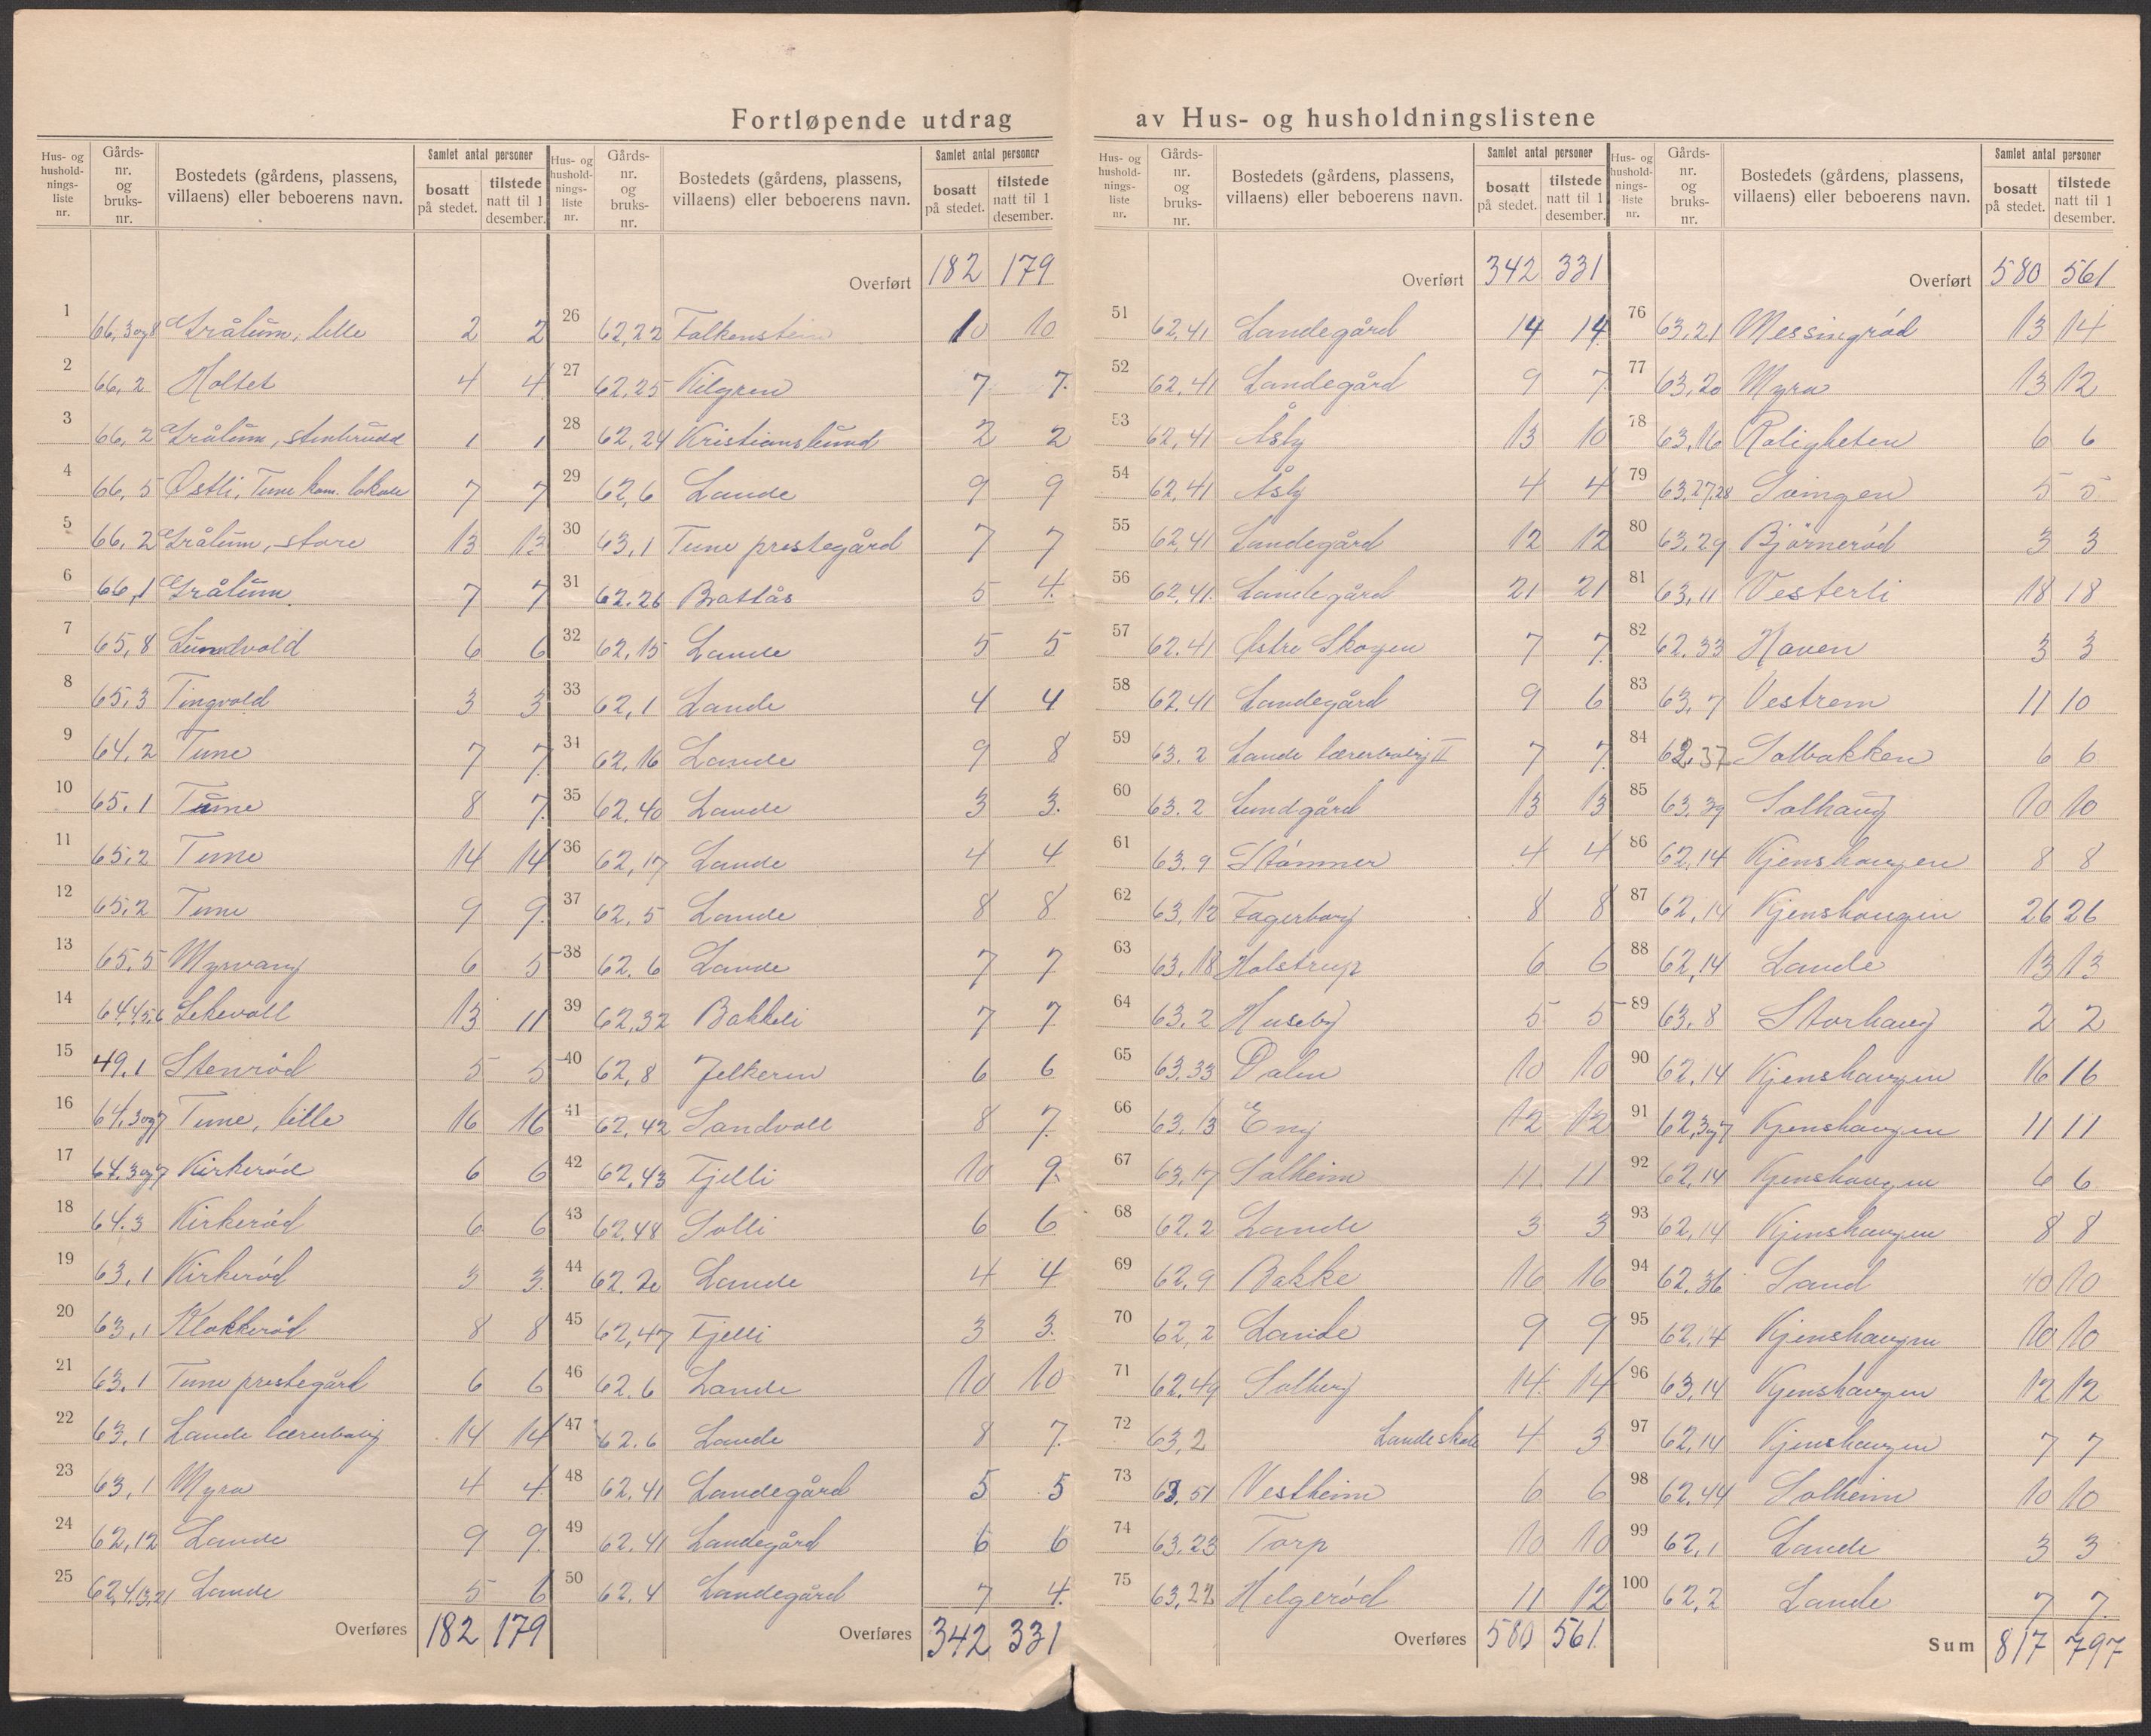 Fortløpende utdrag av Hus- og husholdningslistene
Hus- og husholdnings-liste nr. | Gårds-nr. og bruks-nr. | Bostedets (gårdens, plassens, villaens) eller beboerens navn. | Samlet antal personer | bosatt på stedet. | tilstede natt til 1 desember.
1 66,3og8 Grålum, lille 2 2
2 66,2 Holtet 4 4
3 66,2 Grålum, stenbrudd 1 1
4 66,5 Østli, Tune kom. lokale 7 7
5 66,2 Grålum, store 13 13
6 66,1 Grålum 7 7
7 65,8 Lundvold 6 6
8 65,3 Tingvold 3 3
9 64,2 Tune 7 7
10 65.1 Tune 8 7
11 65,2 Tune 14 14
12 65,2 Tune 9 9
13 65,5 Myrvang 6 5
14 64,4,5,6 Lekevoll 13 11
15 49,1 Stenrød 5 5
16 64,3og7 Tune, lille 16 16
17 64.3og7 Kirkerød 6 6
18 64.3 Kirkerød 6 6
19 63,1 Kirkerød 3 3
20 63,1 Klokkerød 8 8
21 63.1 Tune prestegård 6 6
22 63,1 Lande lærerbolig 14 14
23 63,1 Myra 4 4
24 62,12 Lande 9 9
25 62,4,13,21 Lande 5 6
Overføres 182 179
Hus- og husholdnings-liste nr. | Gårds-nr. og bruks-nr. | Bostedets (gårdens, plassens, villaens) eller beboerens navn. | Samlet antal personer | bosatt på stedet. | tilstede natt til 1 desember.
Overført 182 179
26 62,22 Falkenstein 10 10
27 62,25 Kilgren 7 7
28 62,24 Kristianslund 2 2
29 62,6 Lande 9 9
30 63,1 Tune prestegård 7 7
31 62.26 Brattås 5 4
32 62,15 Lande 5 5
33 62,1 Lande 4 4
34 62,16 Lande 9 8
35 62,40 Lande 3 3
36 62,17 Lande 4 4
37 62,5 Lande 8 8
38 62,6 Lande 7 7
39 62,32 Bakkeli 7 7
40 62,8 6 6
41 62,42 Sandvoll 8 7
42 62,43 Fjelli 10 9
43 62.48 Solli 6 6
44 62.20 Lande 4 4
45 62,47 Fjelli 3 3
46 62.6 Lande 10 10
47 62.6 Lande 8 7
48 62,41 Landegård 5 5
49 62.41 Landegård 6 6
50 62.4 Landegård 7 4
Overføres 342 331
Hus- og husholdnings-liste nr. | Gårds-nr. og bruks-nr. | Bostedets (gårdens, plassens, villaens) eller beboerens navn. | Samlet antal personer | bosatt på stedet. | tilstede natt til 1 desember.
Overført 342 331
51 62,41 Landegård 14 14
52 62,41 Landegård 9 7
53 62,41 Åsly 13 10
54 62,41 Åsly 4 4
55 62,41 Landegård 12 12
56 62,41 Landegård 21 21
57 62.41 Østre Skogen 7 7
58 62.41 Landegård 9 6
59 63.2 Lande lærerbolig II 7 7
60 63.2 Lundgård 13 13
61 63.9 4 4
62 63,12 Fagerborg 8 8
63 63,18 Holstrup 6 6
64 63.2 Huseby 5 5
65 63.33 Dalen 10 10
66 63.13 Eng 12 12
67 63,17 Solheim 11 11
68 62,2 Lande 3 3
69 62,9 Bakke 16 16
70 62,2 Lande 9 9
71 62.49 Solberg 14 14
72 63,2 Lande skole 4 3
73 63,51 Vestheim 6 6
74 63.23 Torp 10 10
75 63,22 Helgerød 11 12
Overføres 580 561
Hus- og husholdnings-liste nr. | Gårds-nr. og bruks-nr. | Bostedets (gårdens, plassens, villaens) eller beboerens navn. | Samlet antal personer | bosatt på stedet. | tilstede natt til 1 desember.
Overført 580 561
76 63,21 Messingrød 13 14
77 63,20 Myra 13 12
78 63,16 Roligheten 6 6
79 63,27,28 Svingen 5 5
80 63.29 Bjørnerød 3 3
81 63,11 Vesterli 18 18
82 62.33 Haven 3 3
83 63,7 Vestrem 11 10
84 62,37 Solbakken 6 6
85 63.39 Solhaug 10 10
86 62,14 Kjenshaugen 8 8
87 62,14 Kjenshaugen 26 26
88 62,14 Lande 13 13
89 63,8 Storhaug 2 2
90 62,14 Kjenshaugen 16 16
91 62,3og7 Kjenshaugen 11 11
92 62,14 Kjenshaugen 6 6
93 62,14 Kjenshaugen 8 8
94 62.36 Sand 10 10
95 62,14 Kjenshaugen 10 10
96 63,14 Kjenshaugen 12 12
97 62,14 Kjenshaugen 7 7
98 62,44 Solheim 10 10
99 62,1 Lande 3 3
100 62,2 Lande 7 7
Sum 817 797